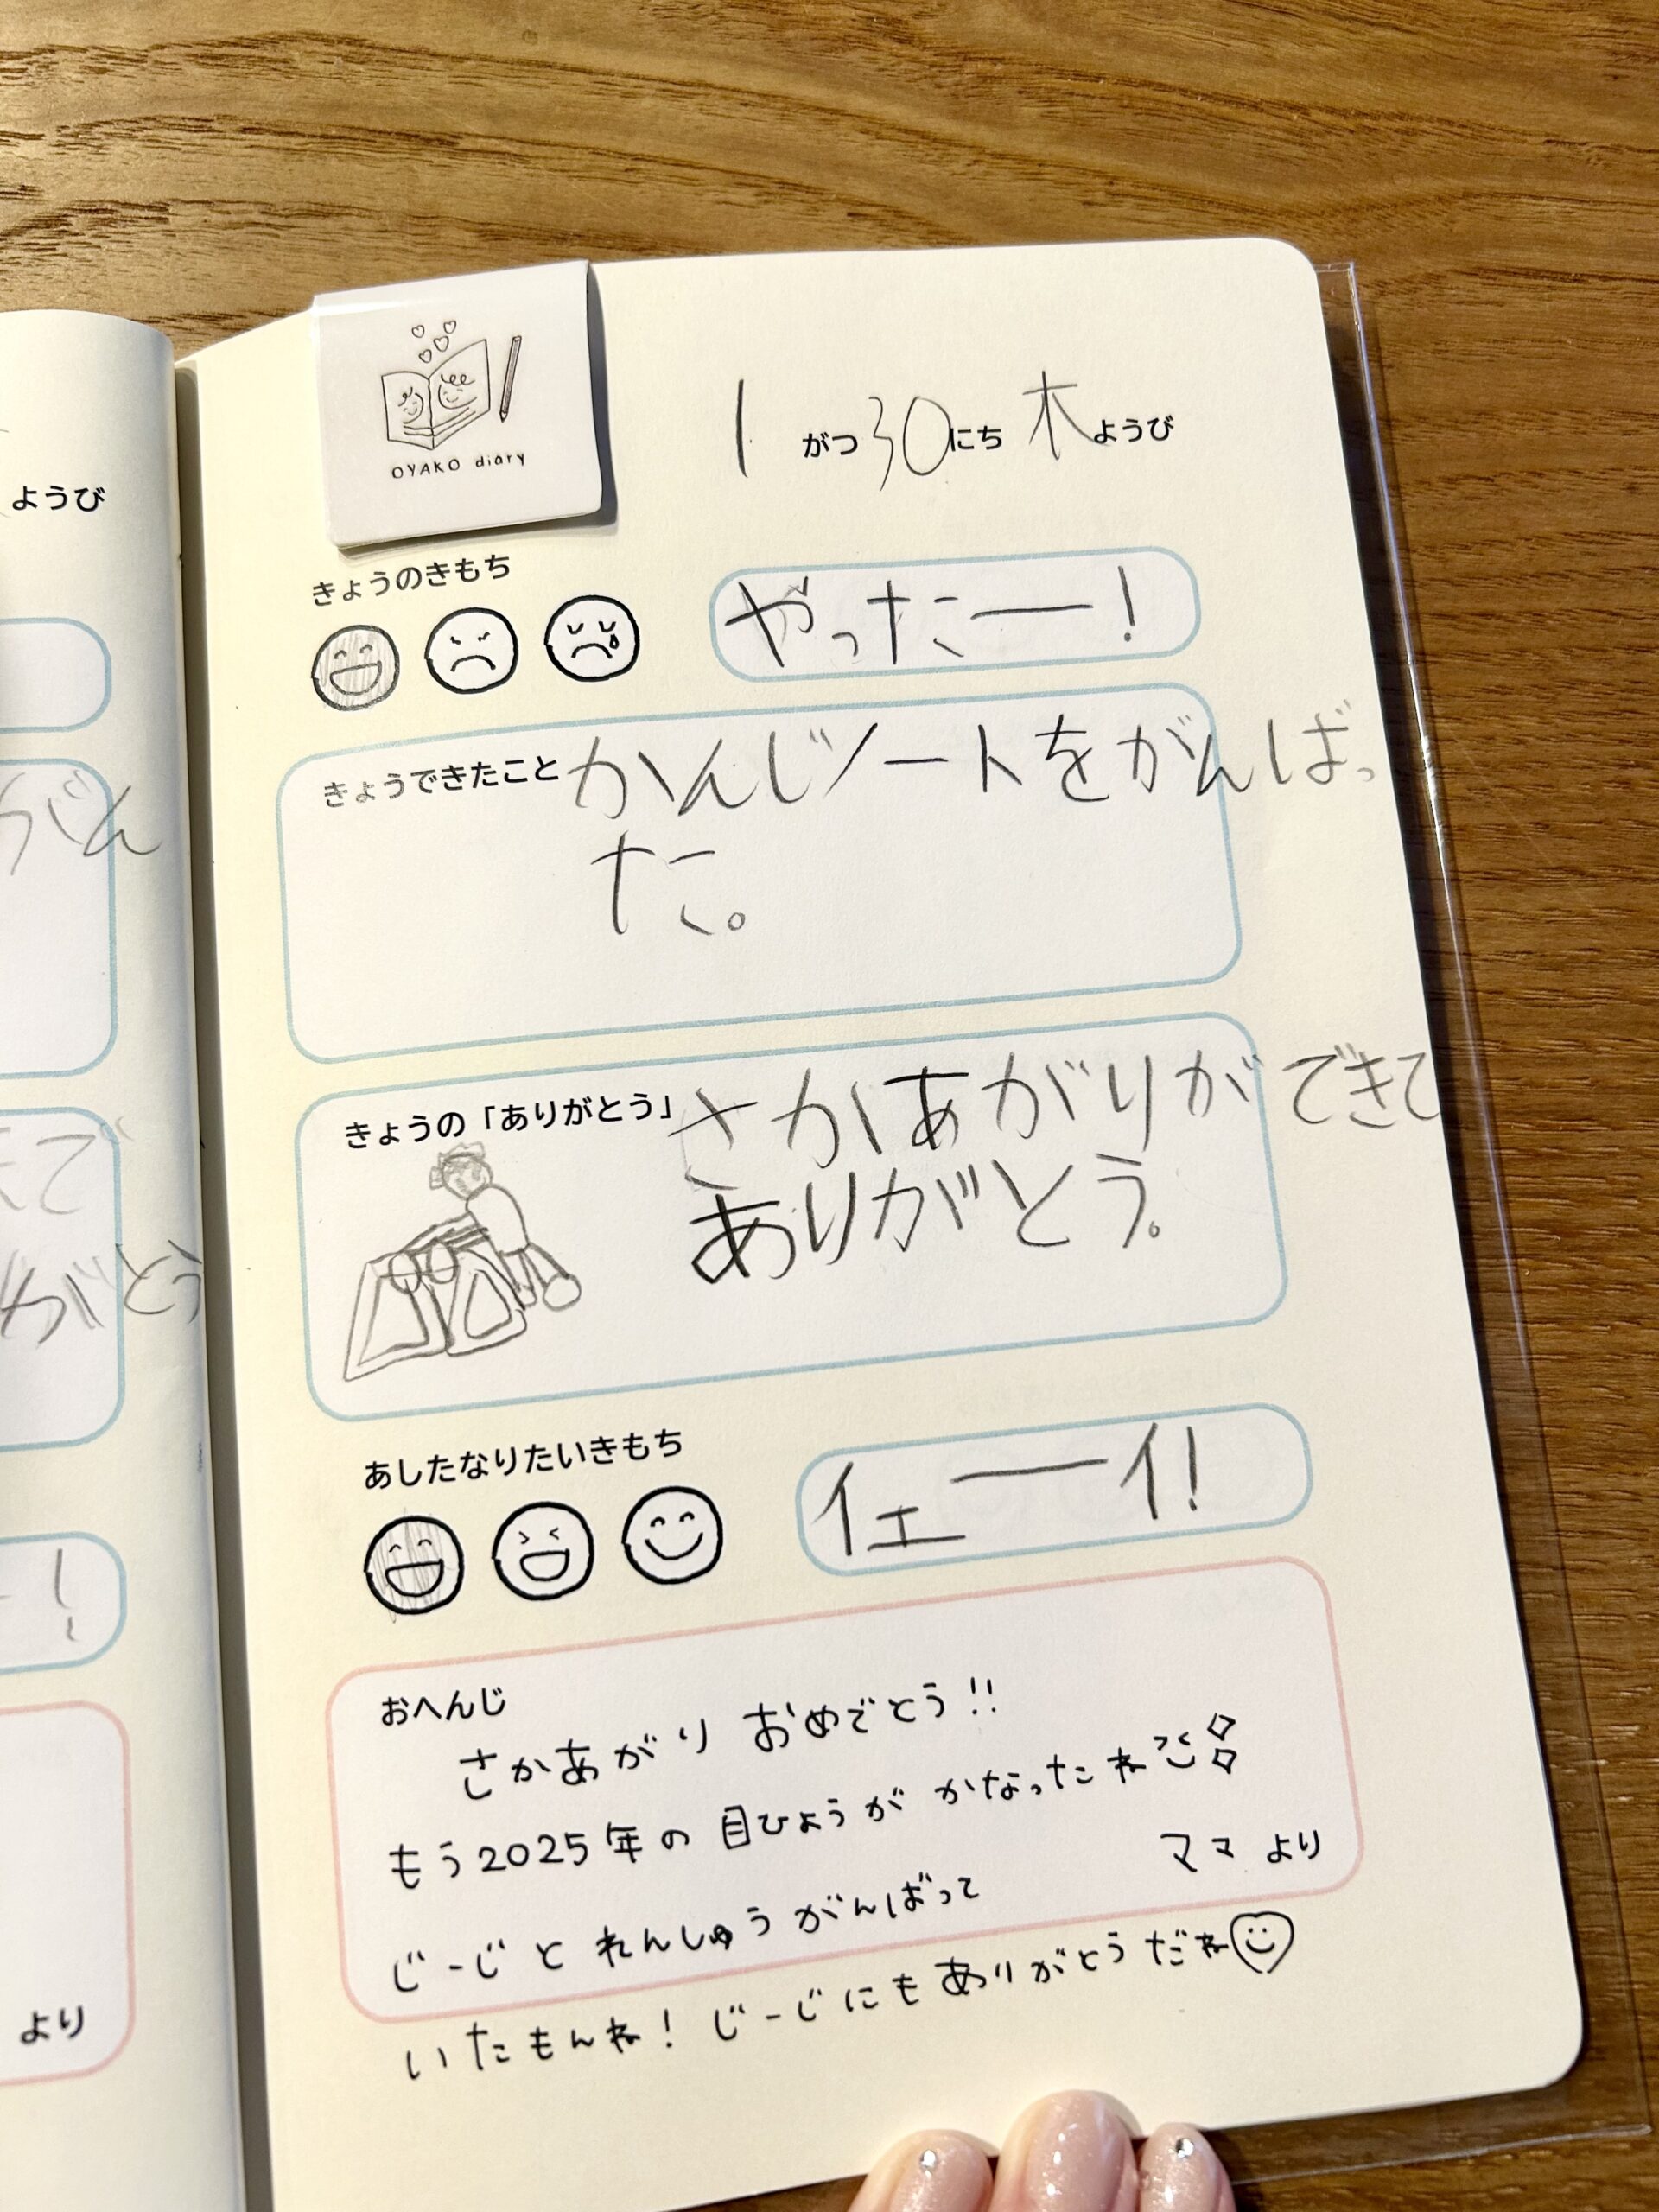 ようび
がん
たで
がとう
ー!
より
OYAKO diary
1がつ30にち 木ようび
きょうのきもち
やったー!
きょうできたこと かんじノートをがんばっ
た。
きょうの「ありがとう」 さかあがりができて
ありがとう。
あしたなりたいきもち
イエーイ!
おへんじ
さかあがり おめでとう!!
もう2025年の 目ひょうが かなったね
じーじと れんしゅう がんばって
ママより
いたもんね! じーじにも ありがとうだね